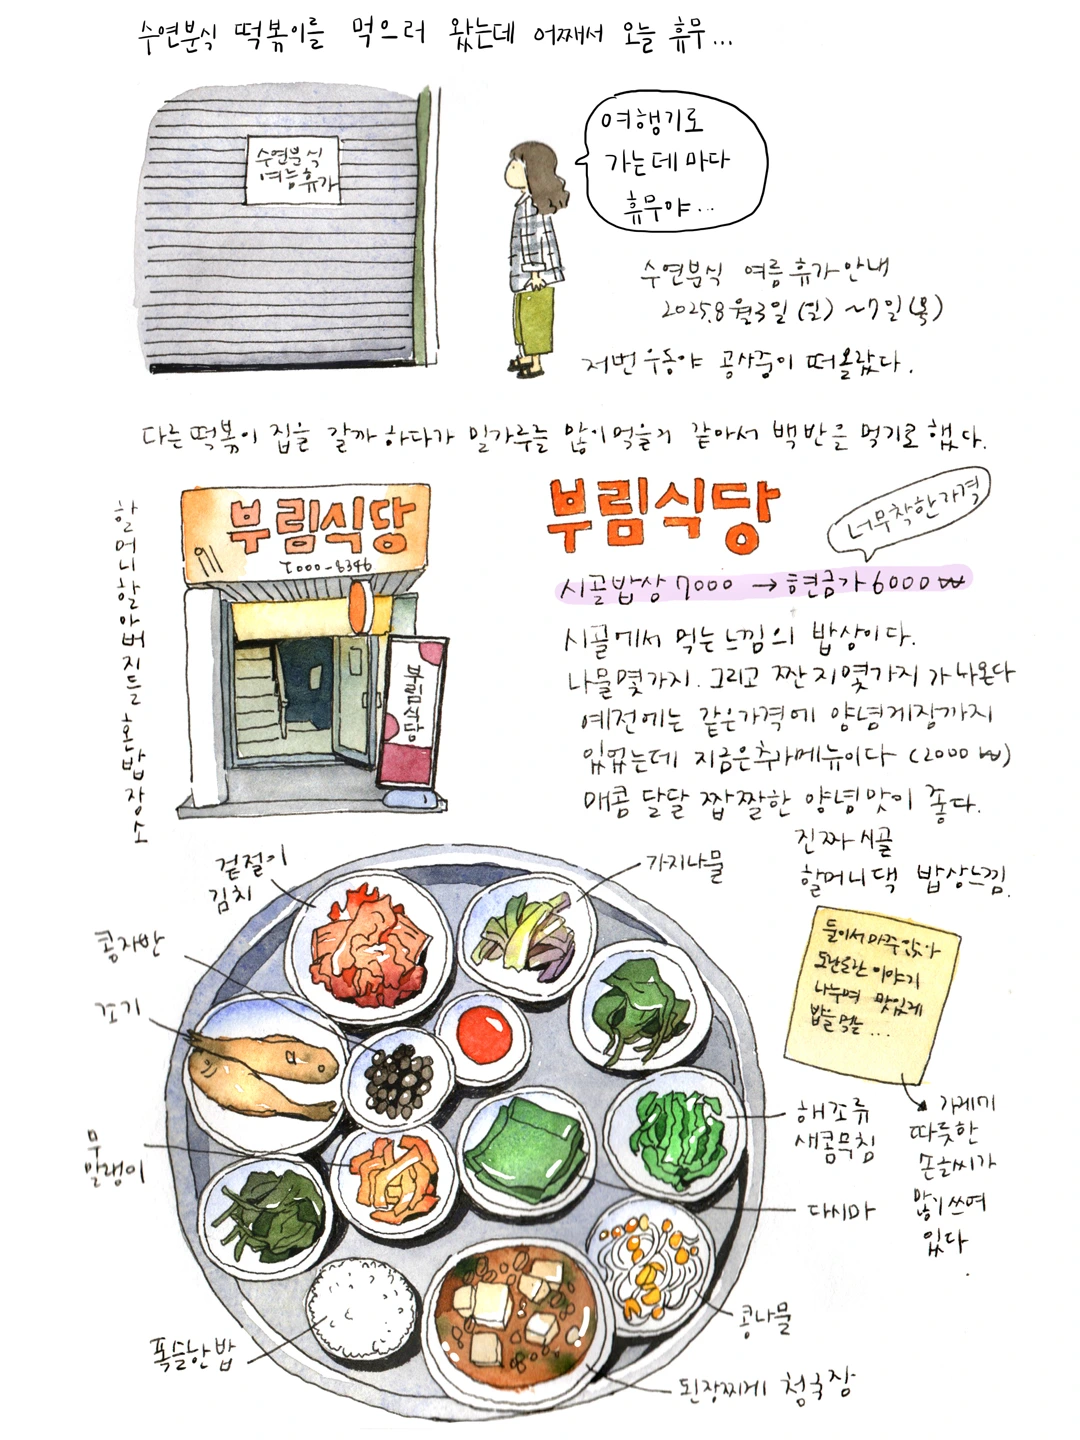 수연분식 떡볶이를 먹으러 왔는데 어째서 오늘 휴무...
수연분식
여름휴가
여행기로
가는데마다
휴무야...
수연분식 여름휴가안내
2025.8월3일(일)~7일(목)
저번우동야 공사중이 떠올랐다.
다른떡볶이 집을 갈까 하다가 밀가루를 많이먹을거 같아서 백반을 먹기로했다.
할머니할아버지들 혼밥장소
부림식당
7000-8346
부림식당
부림식당
너무착한가격
시골밥상7000 → 현금가6000₩
시골에서 먹는느낌의 밥상이다.
나물몇가지. 그리고 짠지몇가지가나온다
예전에는 같은가격에 양념게장까지
있었는데 지금은추가메뉴이다 (2000₩)
매콤달달 짭짤한 양념맛이 좋다.
진짜시골
할머니댁 밥상느낌.
겉절이
김치
가지나물
콩자반
조기
무
말랭이
들어서마주앉아
도란도란 이야기
나누며 맛있게
밥을먹는...
가게에
따뜻한
손글씨가
많이쓰여
있다.
해조류
새콤무침
다시마
콩나물
폭슬한밥
된장찌게 청국장